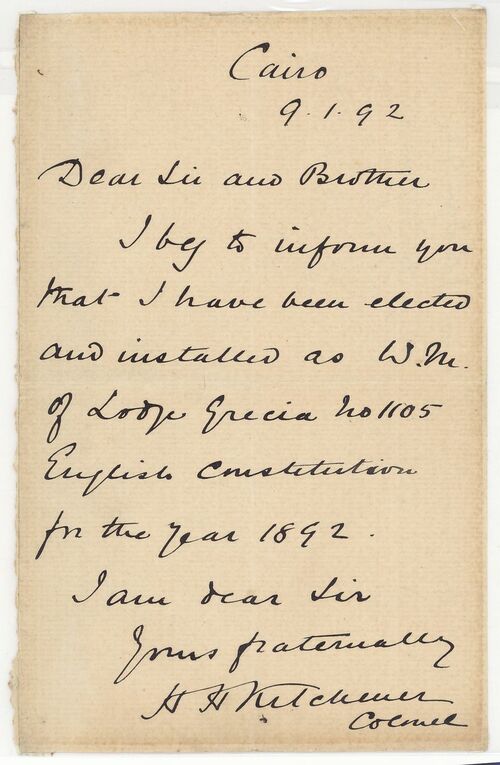 Cairo
9.1.92
Dear Sir and Brother
I beg to inform you
that I have been elected
and installed as W.M.
of Lodge Grecia No 1105
English Constitution
for the year 1892.
I am dear Sir
Yours fraternally
H H Kitchener
Colonel